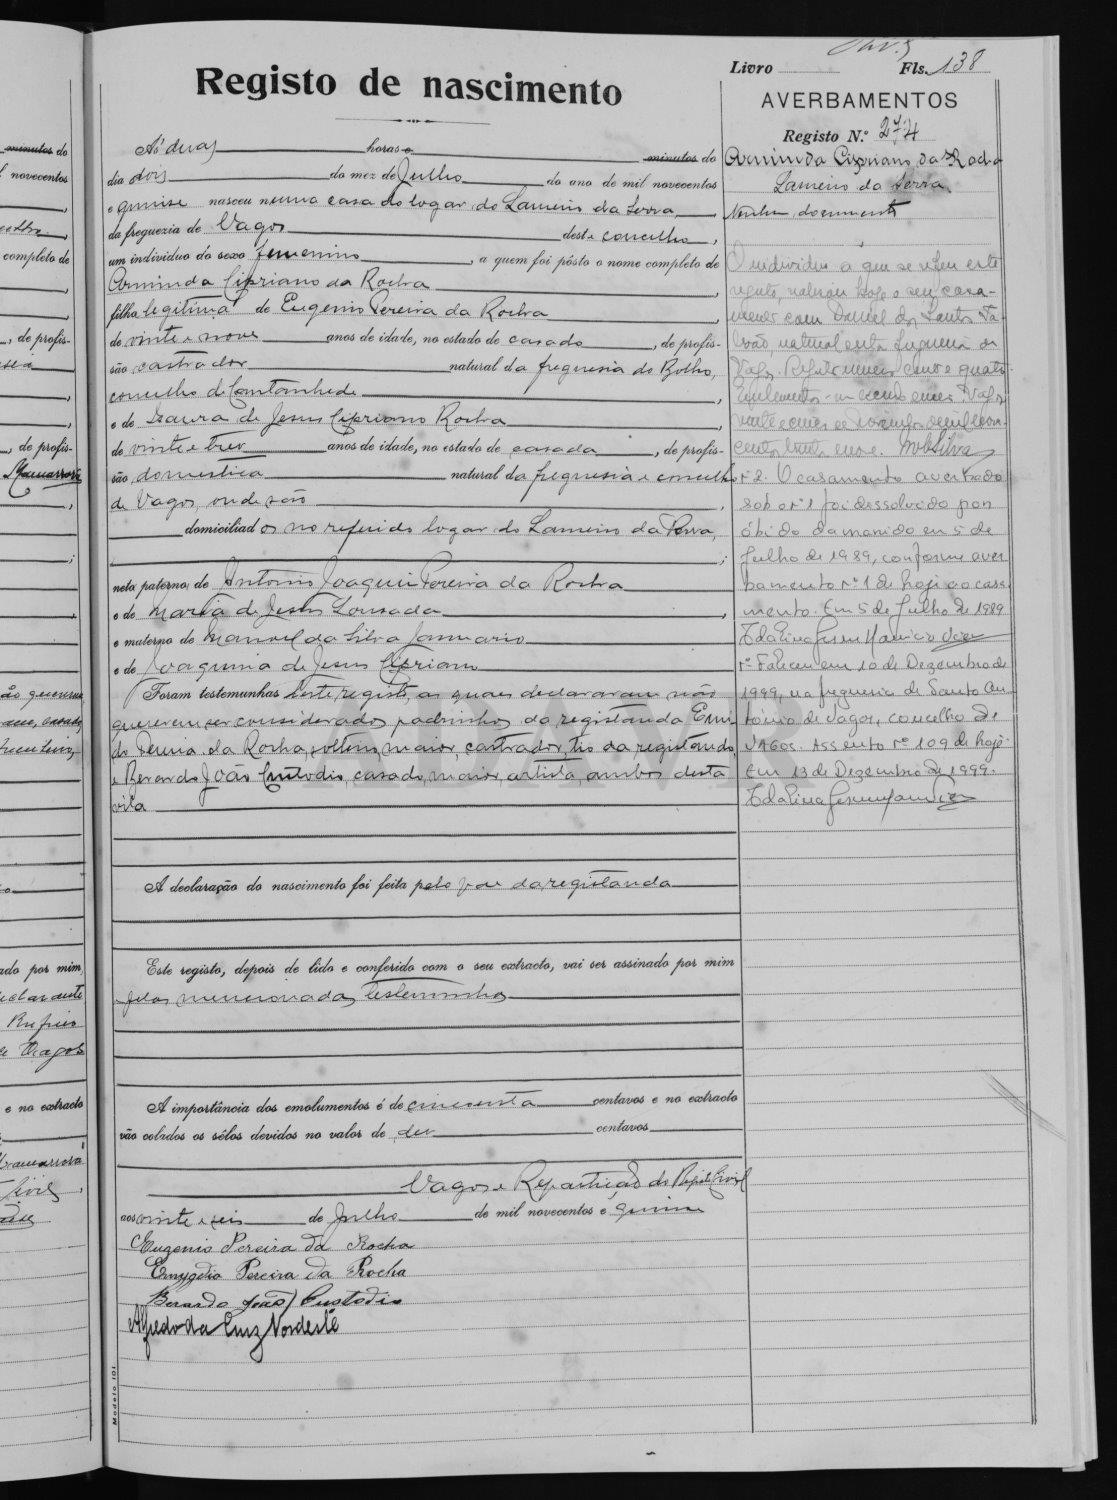 Livro Fls. 138
Registo de nascimento
Ás duas horas e minutos do
dia dois do mez de Julho do ano de mil novecentos
e quinse nasceu numa casa do logar do Lameiro da Serra,
da freguezia de Vagos deste concelho,
um individuo do sexo femenino, a quem foi pôsto o nome completo de
Arminda Cipriano da Rocha,
filha legitima de Eugenio Pereira da Rocha,
de vinte e nove anos de idade, no estado de casado, de profis-
são castrador natural da freguesia do Bolho,
concelho de Cantanhede,
e de Isaura de Jesus Cipriano Rocha,
de vinte e tres anos de idade, no estado de casada, de profis-
são domestica natural da freguesia e concelho
de Vagos, onde são
domiciliados no referido logar do Lameiro da Serra,
;
neta paterna de Antonio Joaquim Pereira da Rocha
e de Maria de Jesus Lousada,
e materna de Manoel da Silva Januario
e de Joaquina de Jesus Cipriano
Foram testemunhas deste registo, as quaes declararam não
quererem ser considerados padrinhos da registanda Emi-
dio Pereira da Rocha, solteiro, maior, castrador, tio da registanda,
e Berardo João Custodio, casado, maior, artista, ambos desta
vila
A declaração do nascimento foi feita pelo pae da registanda
Este registo, depois de lido e conferido com o seu extracto, vai ser assinado por mim
e pelas mencionadas testemunhas
A importância dos emolumentos é de cincoenta centavos e no extracto
vão colados os sêlos devidos no valor de dez centavos
Vagos e Repartição do Registo Civil
aos vinte e seis de Julho de mil novecentos e quinse
Eugenio Pereira da Rocha
Emygdio Pereira da Rocha
Berardo João Custodio
Alfredo da Cruz Nordeste
Modelo 101
AVERBAMENTOS
Registo N.º 274
Arminda Cipriano da Rocha
Lameiro da Serra
Nenhum documento
O individuo a que se refere este
registo, realizou hoje o seu casa-
mento com Daniel dos Santos
natural desta freguesia de
Vagos. Registo numero cento e quatro
Vagos
vinte e cinco de Novembro de mil nove-
centos trinta e nove.
nº 2. O casamento averbado
sob o nº 1 foi dissolvido por
óbito do marido em 5 de
Julho de 1989, conforme aver-
bamento nº 1 de hoje ao casa-
mento. Em 5 de Julho de 1989
Faleceu em 10 de Dezembro de
1999, na freguesia de Santo An-
tónio de Vagos, concelho de
Vagos. Assento nº 109 de hoje.
Em 13 de Dezembro de 1999.
ADAVR
minutos do
novecentos
completo de
, de profis-
, de profis-
ado por mim,
e no extracto